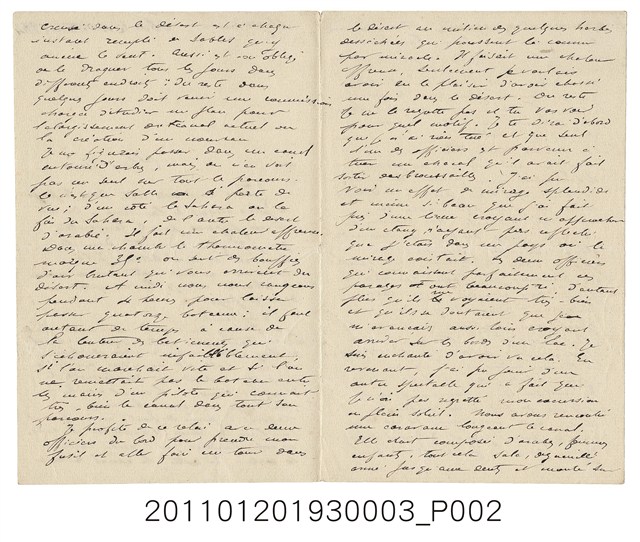 creusé dans le désert est à chaque
instant rempli de sables qu'y
amène le vent. Aussi est-on obligé
de le draguer tous les jours dans
différents endroits. Du reste dans
quelques jours doit venir une commission
chargée d'étudier un plan pour
l'élargissement du canal actuel ou
la création d'un nouveau.
Je me figurais passer dans un canal
entouré d'arbres, mais on n'en voit
pas un seul sur tout le parcours.
Le sable à perte de
vue; d'un côté le Sahara ou la
fin du Sahara, de l'autre le désert
d'Arabie. Il fait une chaleur affreuse
Dans ma chambre le thermomètre
marque 35°: on sent des bouffées
d'air brûlant qui vous arrivent du
désert. A midi nous nous rangeons
pendant 4 heures pour laisser
passer quatorze bateaux; il faut
autant de temps à cause de
la lenteur des bâtiments qui
s'échoueraient infailliblement
si l'on marchait vite et si l'on
ne remettait pas le bateau entre
les mains d'un pilote qui connait
très bien le canal dans tout son
parcours.
Je profite de ce relai avec deux
officiers du bord pour prendre mon
fusil et aller faire un tour dans
le désert au milieu des quelques herbes
desséchées qui poussent là comme
par miracle. Il faisait une chaleur
affreuse, seulement je voulais
avoir eu le plaisir d'avoir chassé
une fois dans le désert. Du reste
je ne le regrette pas et tu vas voir
pour quel motif. Je te dirai d'abord
que je n'ai rien tué et que seul
l'un des officiers est parvenu à
tuer un chacal qu'il avait fait
sortir des broussailles. J'ai pu
voir un effet de mirage splendide
et même si beau que j'ai fait
près d'une lieue croyant m'approcher
d'un étang n'ayant pas réfléchi
que j'étais dans un pays où le
mirage existait. Les deux officiers
qui connaissaient parfaitement ces
parages ont beaucoup ri d'autant
plus qu'ils me voyaient très bien
et qu'ils se doutaient que je
m'avançais aussi loin croyant
arriver sur les bords d'un lac. Je
suis enchanté d'avoir vu cela. En
revenant, j'ai pu jouir d'un
autre spectacle qui a fait que
je n'ai pas regretté mon excursion
en plein soleil. Nous avons rencontré
une caravane longeant le canal.
Elle était composée d'arabes, femmes
enfants, tout cela sale, déguenillé
armé jusqu'aux dents et monté sur
201101201930003_P002